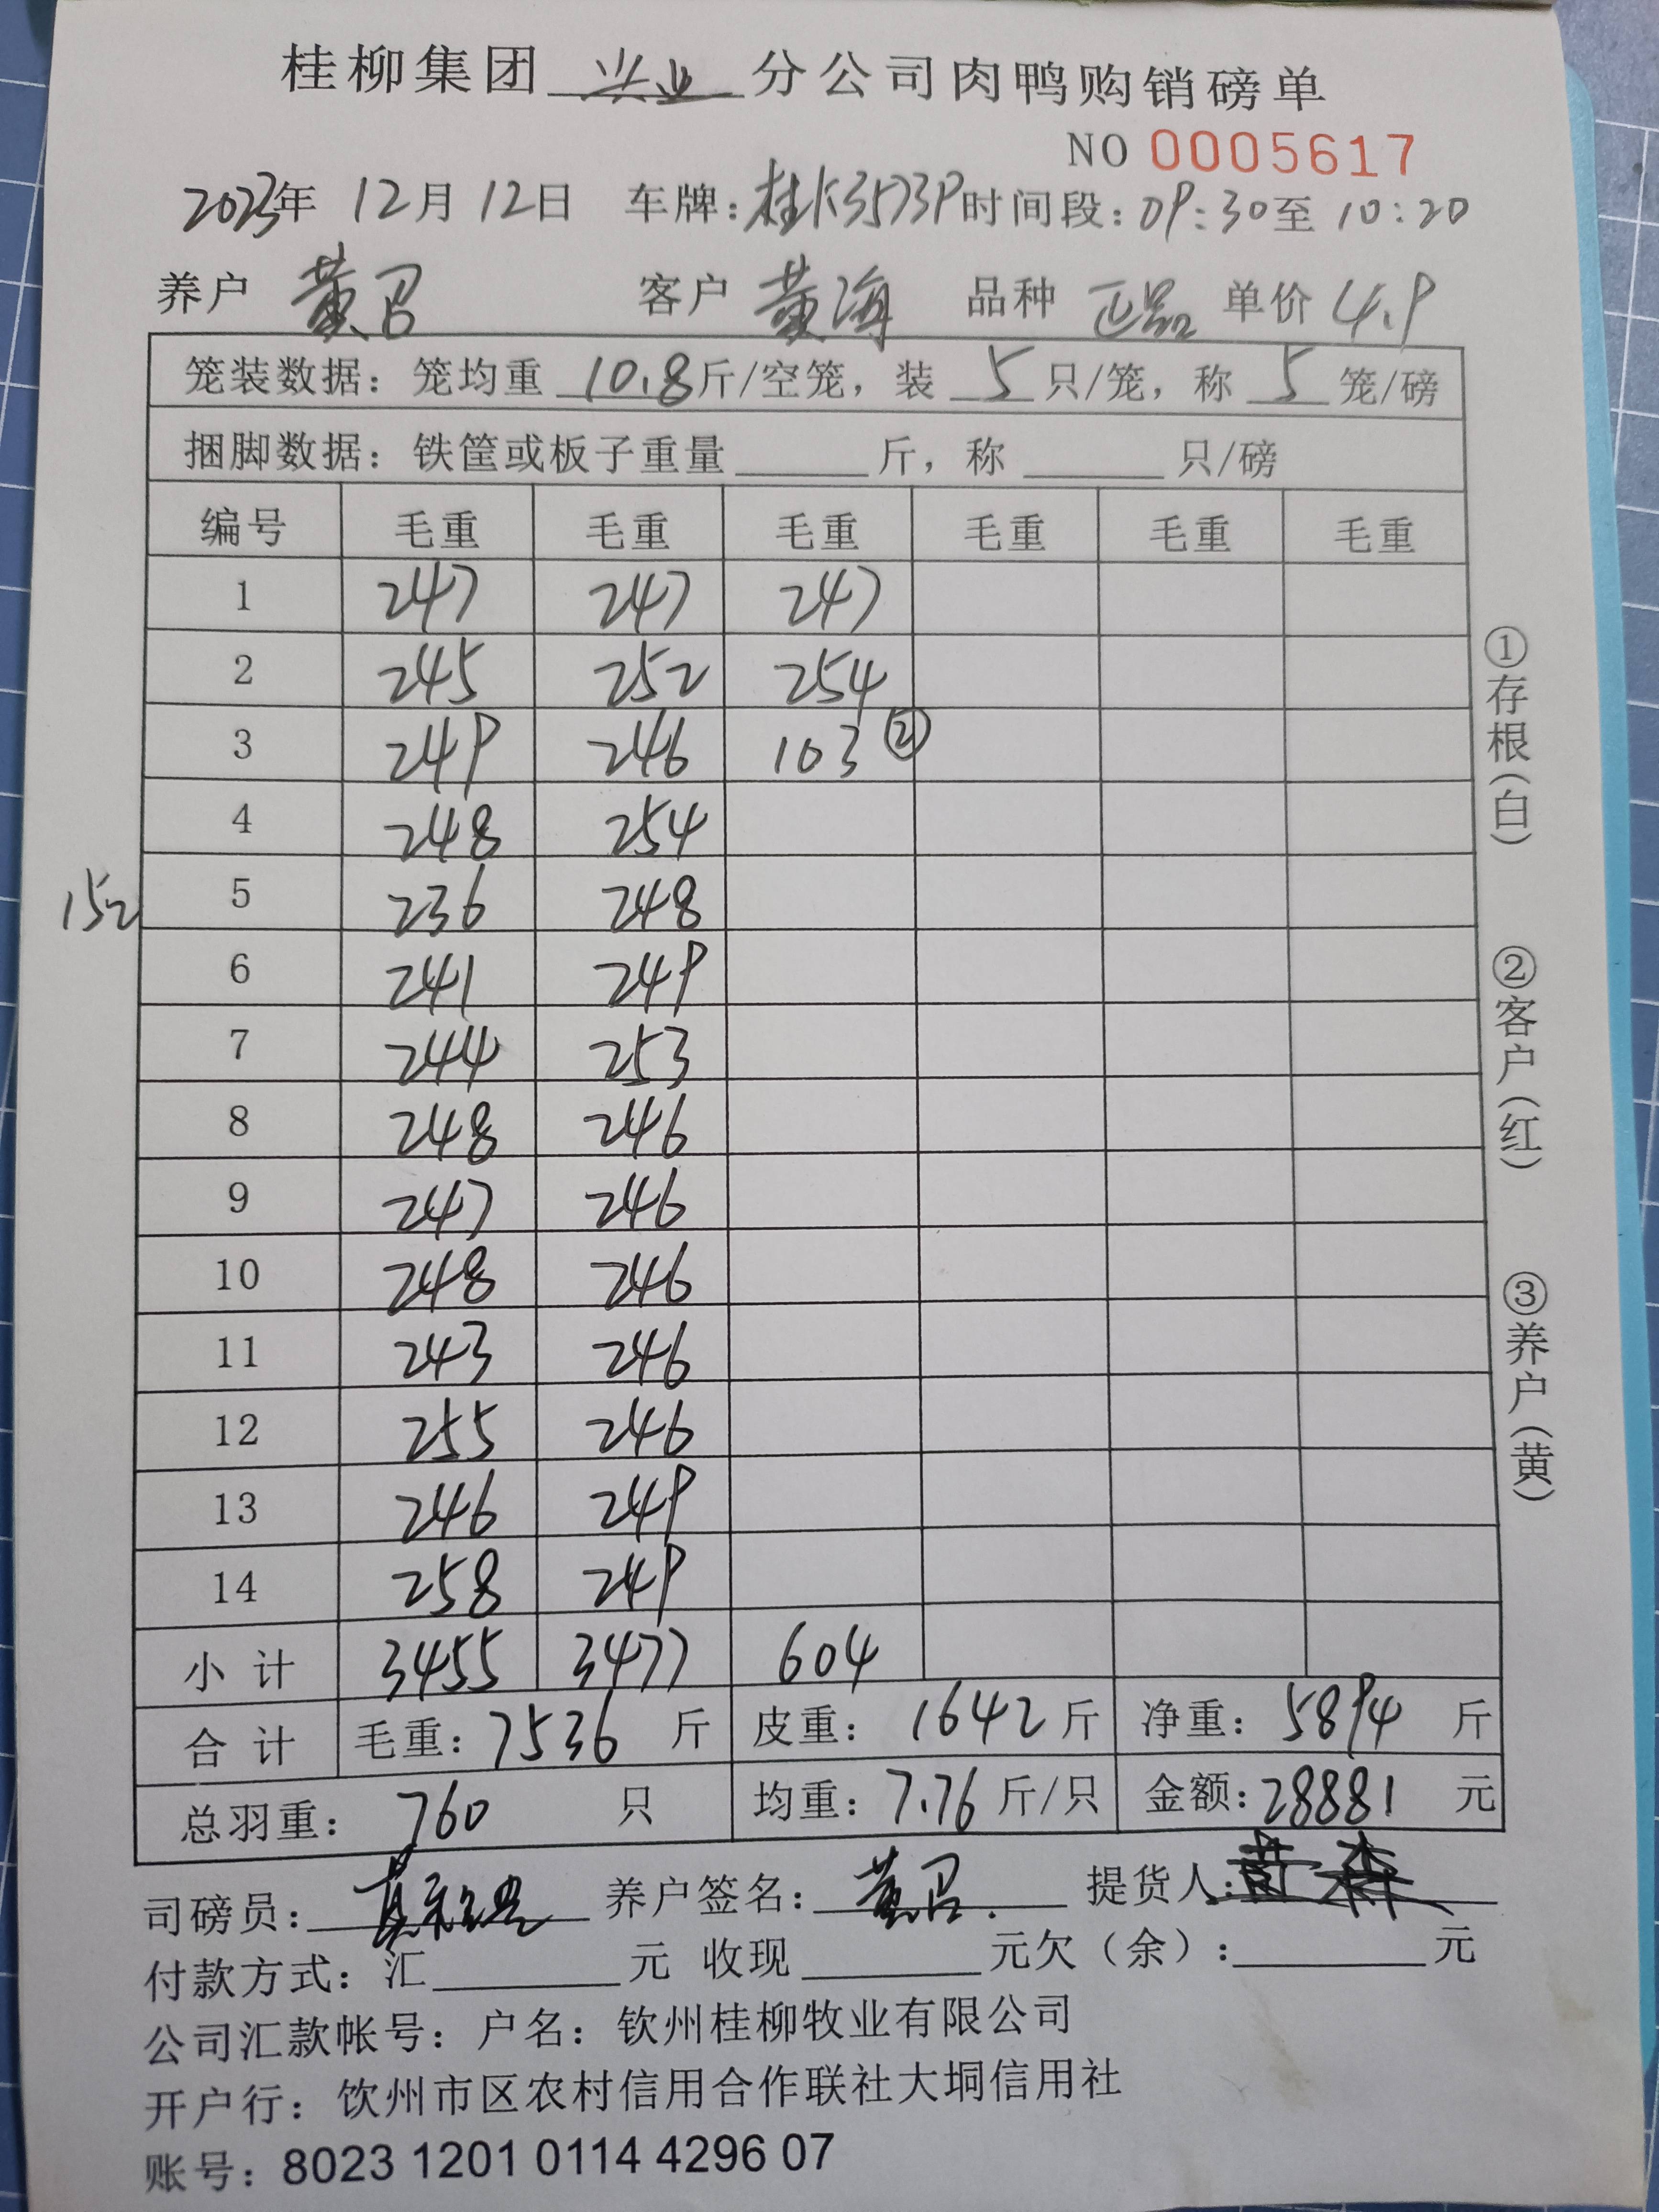 桂柳集团 兴业 分公司肉鸭购销磅单
NO 0005617
2023年 12月 12日 车牌：桂K3573P 时间段：09:30至 10:20
养户 黄召 客户 黄海 品种 正品 单价 4.9
笼装数据：笼均重 10.8 斤/空笼，装 5 只/笼，称 5 笼/磅
捆脚数据：铁筐或板子重量 斤，称 只/磅
编号 毛重 毛重 毛重 毛重 毛重 毛重
1 247 247 247
2 245 252 254
3 249 246 103 ②
4 248 254
152 5 236 248
6 241 249
7 244 253
8 248 246
9 247 246
10 248 246
11 243 246
12 255 246
13 246 249
14 258 249
小计 3455 3477 604
合计 毛重：7536 斤 皮重：1642 斤 净重：5894 斤
总羽重：760 只 均重：7.76 斤/只 金额：28881 元
司磅员： 养户签名：黄召. 提货人：
付款方式：汇 元 收现 元欠（余）： 元
公司汇款帐号：户名：钦州桂柳牧业有限公司
开户行：钦州市区农村信用合作联社大垌信用社
账号：8023 1201 0114 4296 07
①存根（白）
②客户（红）
③养户（黄）